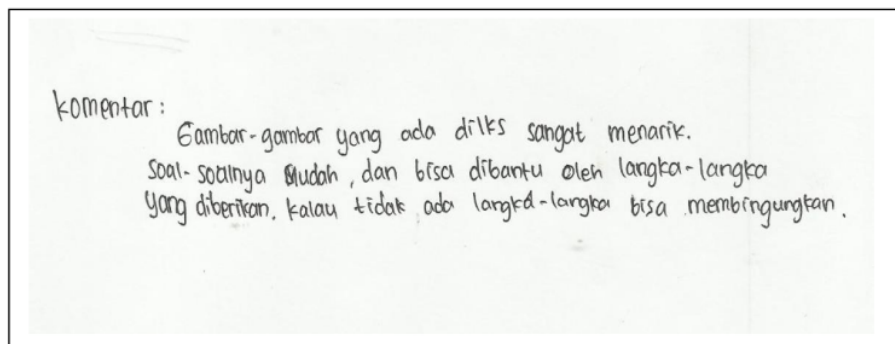 komentar :
Gambar-gambar yang ada dilks sangat menarik.
Soal-soalnya mudah, dan bisa dibantu oleh langka-langka
yang diberikan. kalau tidak ada langka-langka bisa membingungkan.